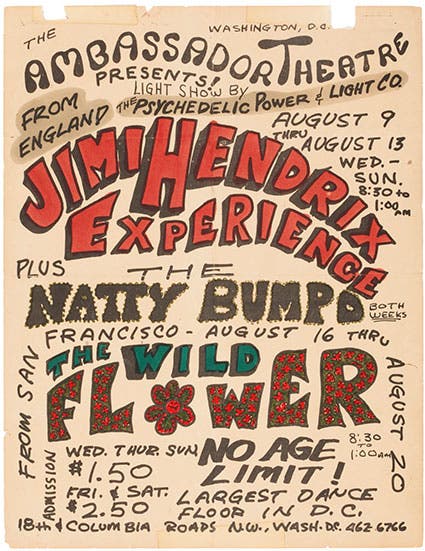 WASHINGTON, D.C.
THE
AMBASSADOR THEATRE
PRESENTS!
LIGHT SHOW BY
THE PSYCHEDELIC POWER & LIGHT CO.
FROM
ENGLAND
AUGUST 9
THRU
AUGUST 13
WED. -
SUN.
8:30 to
1:00 AM
JIMI HENDRIX
EXPERIENCE
PLUS
THE
NATTY BUMPO
BOTH
WEEKS
FROM SAN
FRANCISCO - AUGUST 16 THRU
AUGUST 20
THE WILD
FLOWER
8:30
TO
1:00AM
ADMISSION
WED. THUR. SUN.
$1.50
FRI. & SAT.
$2.50
NO AGE
LIMIT!
LARGEST DANCE
FLOOR IN D.C.
18th & COLUMBIA ROADS N.W., WASH. DC. 462-6766